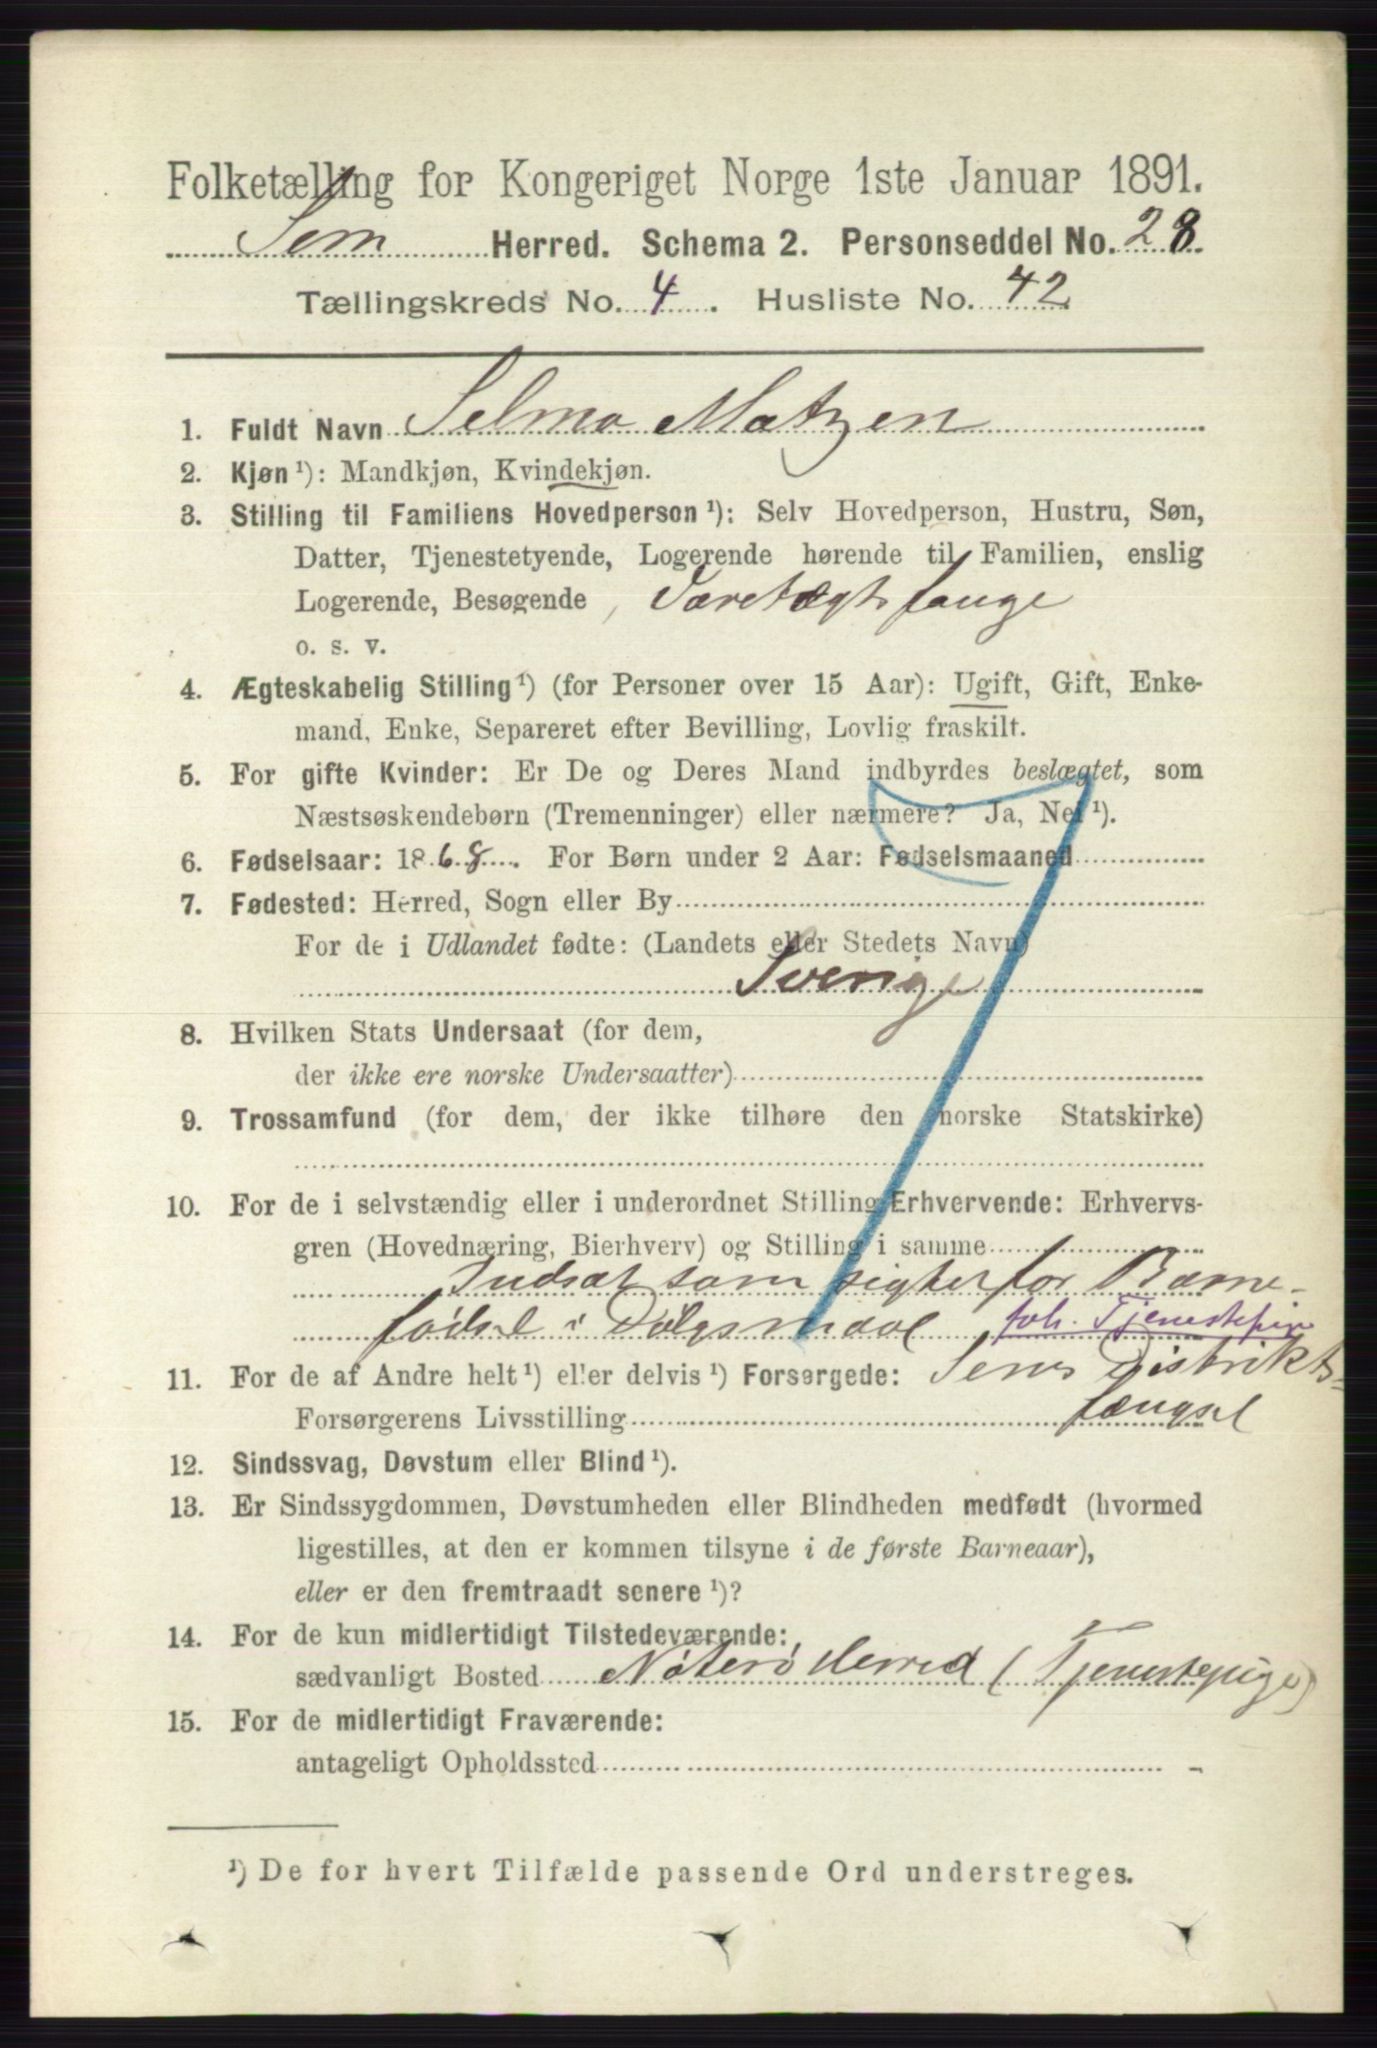 Folketælling for Kongeriget Norge 1ste Januar 1891.
Sem Herred. Schema 2. Personseddel No. 28
Tællingskreds No. 4. Husliste No. 42
1. Fuldt Navn Selma Matzen
2. Kjøn ¹): Mandkjøn, Kvindekjøn.
3. Stilling til Familiens Hovedperson ¹): Selv Hovedperson, Hustru, Søn,
Datter, Tjenestetyende, Logerende hørende til Familien, enslig
Logerende, Besøgende, Varetægtsfange
o. s. v.
4. Ægteskabelig Stilling ¹) (for Personer over 15 Aar): Ugift, Gift, Enke-
mand, Enke, Separeret efter Bevilling, Lovlig fraskilt.
5. For gifte Kvinder: Er De og Deres Mand indbyrdes beslægtet, som
Næstsøskendebørn (Tremenninger) eller nærmere? Ja, Nei ¹).
6. Fødselsaar: 1868. For Børn under 2 Aar: Fødselsmaaned
7. Fødested: Herred, Sogn eller By
For de i Udlandet fødte: (Landets eller Stedets Navn)
Sverige
8. Hvilken Stats Undersaat (for dem,
der ikke ere norske Undersaatter)
9. Trossamfund (for dem, der ikke tilhøre den norske Statskirke)
10. For de i selvstændig eller i underordnet Stilling Erhvervende: Erhvervs-
gren (Hovednæring, Bierhverv) og Stilling i samme
Indsat som sigtet for Barne-
fødsel i Dølgsmaal fvh. Tjenestepige
11. For de af Andre helt ¹) eller delvis ¹) Forsørgede: Sems Distrikts-
Forsørgerens Livsstilling fængsel
12. Sindssvag, Døvstum eller Blind ¹).
13. Er Sindssygdommen, Døvstumheden eller Blindheden medfødt (hvormed
ligestilles, at den er kommen tilsyne i de første Barneaar),
eller er den fremtraadt senere ¹)?
14. For de kun midlertidigt Tilstedeværende:
sædvanligt Bosted Nøterø Herred (Tjenestepige)
15. For de midlertidigt Fraværende:
antageligt Opholdssted
¹) De for hvert Tilfælde passende Ord understreges.